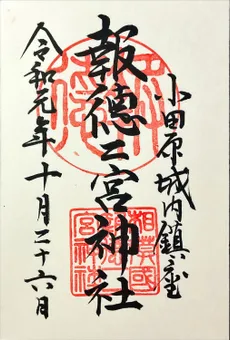 小田原城内鎮座
報徳二宮神社
令和元年十月二十六日
相模國
報徳二
宮神社